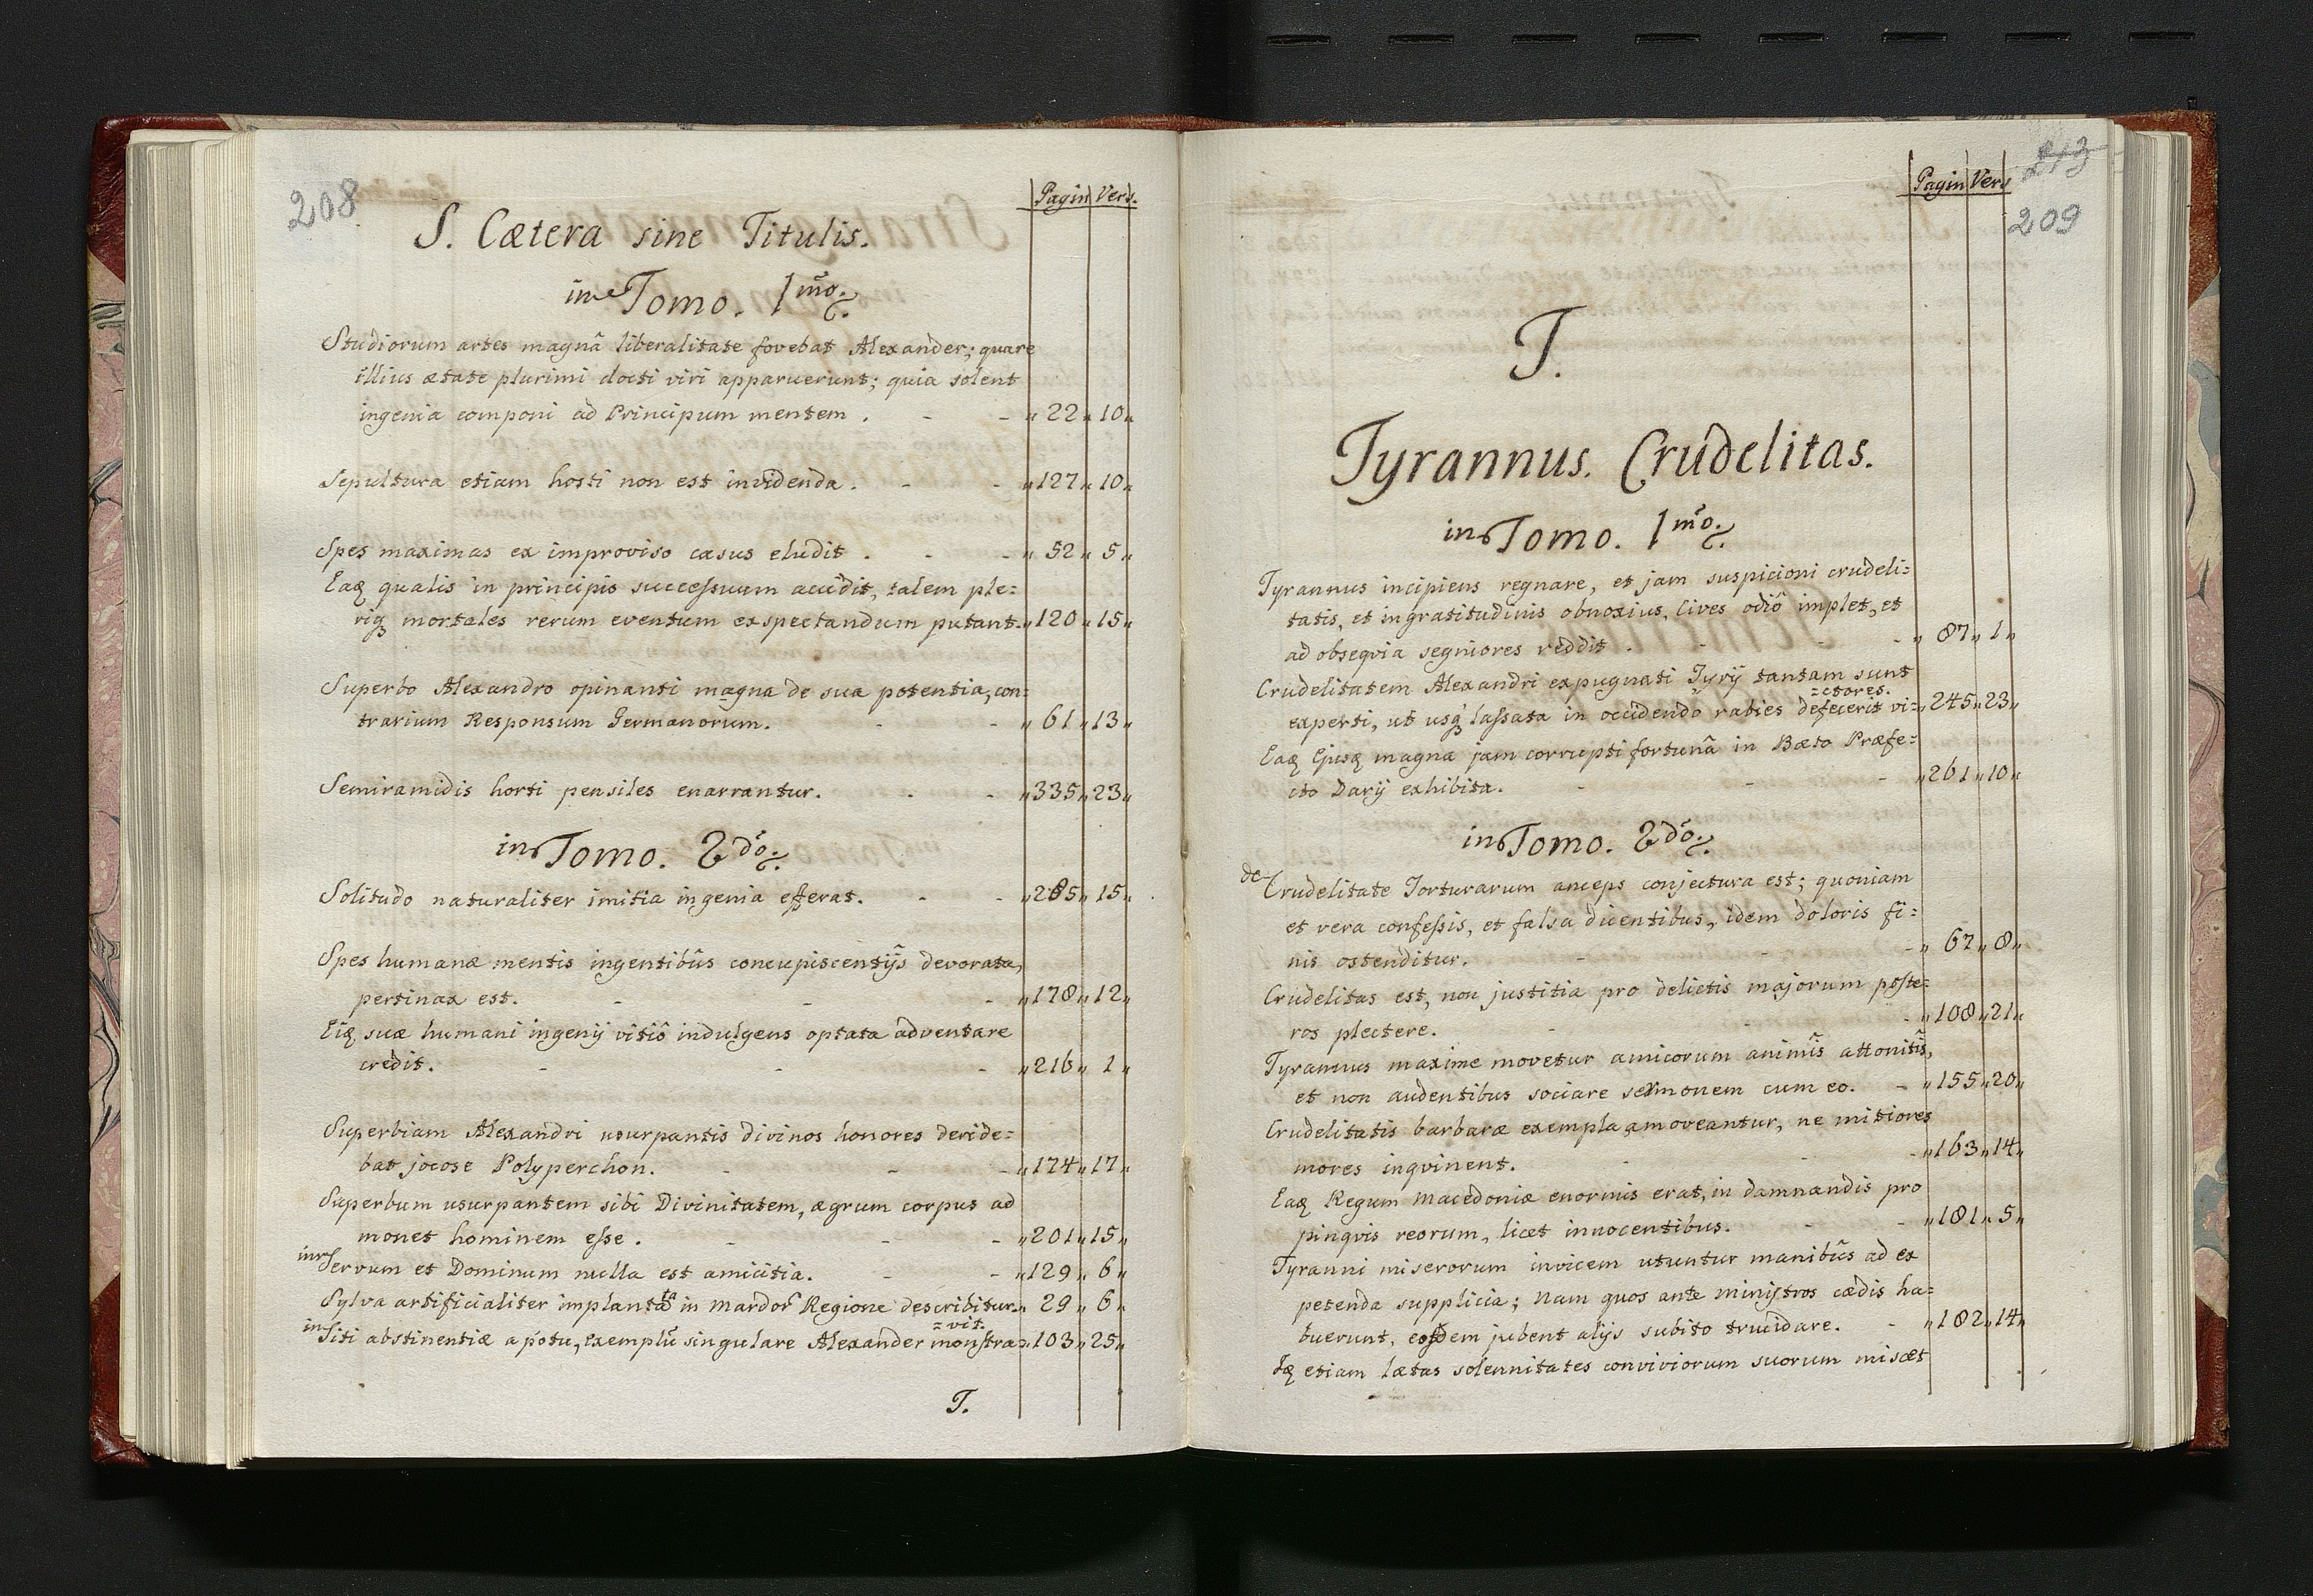 208
Pagin Vers.
S. Cætera sine Titulis.
in Tomo. 1mo.
Studiorum artes magnâ liberalitate fovebat Alexander; quare
illius ætate plurimi docti viri apparuerunt; quia solent
ingenia componi ad Principum mentem . - - „ 22 „ 10 „
Sepultura etiam hosti non est invidenda . - - „ 127 „ 10 „
Spes maximas ex improviso casus eludit . - - „ 52 „ 5 „
Eaq qualis in principio successuum accidit, talem ple=
riq mortales rerum eventum exspectandum putant. „ 120 „ 15 „
Superbo Alexandro opinanti magna de sua potentia, con=
trarium Responsum Germanorum. - - „ 61 „ 13 „
Semiramidis horti pensiles enarrantur. - - „ 335 „ 23 „
in Tomo. 2do.
Solitudo naturaliter imitia ingenia efferat. - - „ 285 „ 15 „
Spes humanæ mentis ingentibûs concupiscentijs devorata,
pertinax est. - - - „ 178 „ 12 „
Eiq suæ humani ingenij vitiô indulgens optata adventare
credit. - - - „ 216 „ 1 „
Superbiam Alexandri usurpantis divinos honores deride=
bat jocose Polyperchon. - - - „ 174 „ 17 „
Superbum usurpantem sibi Divinitatem, ægrum corpus ad
monet hominem esse . - - - „ 201 „ 15 „
inter Servum et Dominum nulla est amicitia. - - „ 129 „ 6 „
Sylva artificialiter implantata in Mardor Regione describitur. „ 29 „ 6 „
=vit.
in Siti abstinentiæ a potu, exemplu singulare Alexander monstra= „ 103 „ 25 „
T.
213
Pagin Vers
209
T.
Tyrannus. Crudelitas.
in Tomo. 1mo.
Tyrannus incipiens regnare, et jam suspicioni crudeli=
tatis, et ingratitudinis obnoxius, Cives odiô implet, et
ad obseqvia segniores reddit . - - „ 87 „ 1 „
Crudelitatem Alexandri expugnati Tyrij tantam sunt
=ctores.
experti, ut usq lassata in occidendo rabies defecerit vi= „ 245 „ 23 „
Eaq Ejusq magna jam corrupti fortunâ in Bæto Præfe=
cto Darij exhibita. - - - „ 261 „ 10 „
in Tomo. 2do.
de Crudelitate Torturarum anceps conjectura est; quoniam
et vera confessis, et falsa dicentibus, idem doloris fi=
nis ostenditur. - - - „ 67 „ 8 „
Crudelitas est, non justitia pro delictis majorum poste=
ros plectere. - - - „ 108 „ 21 „
Tyrannus maxime movetur amicorum animîs attonitîs,
et non audentibus sociare sermonem cum eo. - „ 155 „ 20 „
Crudelitatis barbaræ exempla amoveantur, ne mitiores
mores inqvinent. - - - „ 163 „ 14 „
Eaq Regum Macedoniæ enormis erat, in damnandis pro
pinqvis reorum, licet innocentibus. - - „ 181 „ 5 „
Tyranni miserorum invicem utuntur manibûs ad ex
petenda supplicia; nam quos ante ministros cædis ha=
buerunt, eosdem jubent alijs subito trucidare. - „ 182 „ 14 „
Iq etiam lætas solennitates conviviorum suorum miscet